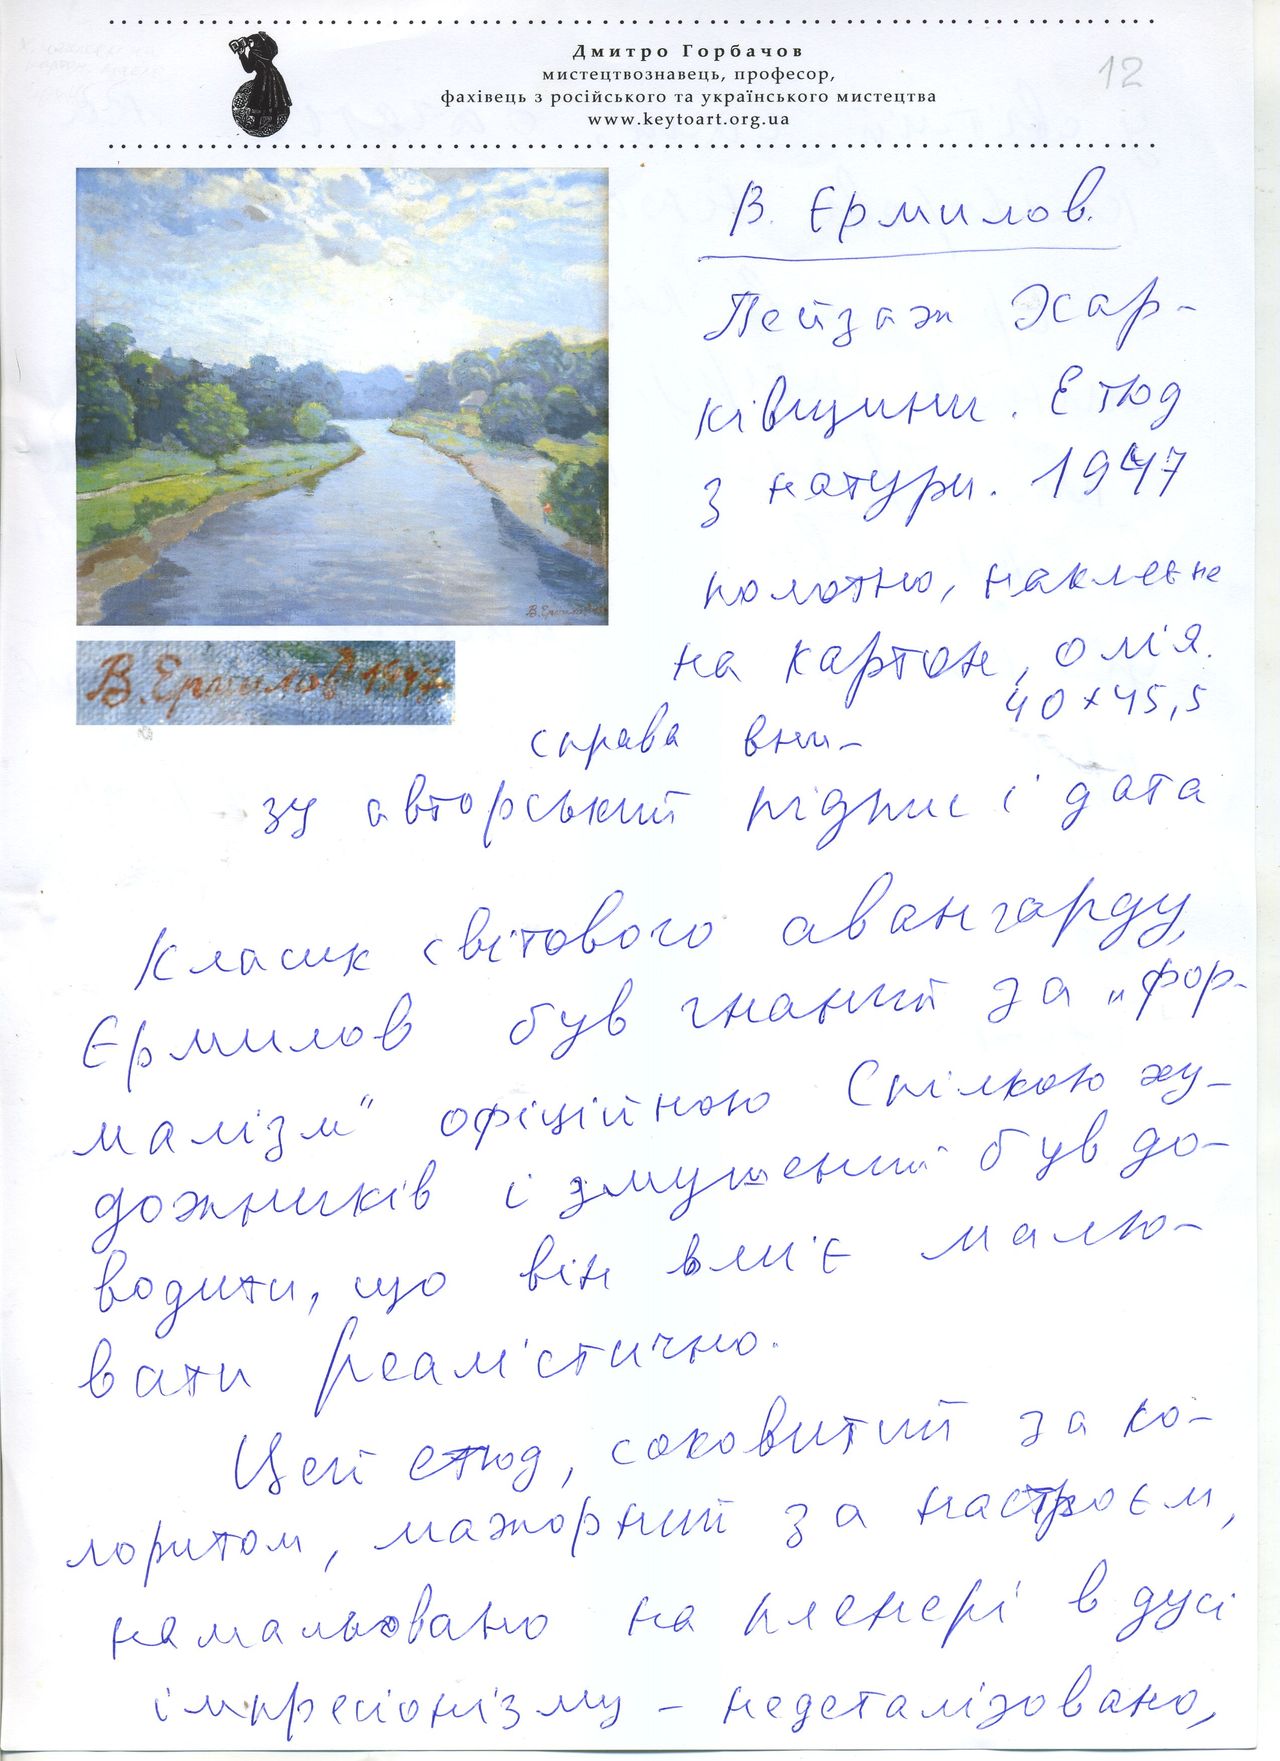 Дмитро Горбачов
мистецтвознавець, професор,
фахівець з російського та українського мистецтва
www.keytoart.org.ua
12
В. Єрмилов.
Пейзаж Хар-
ківщини. Етюд
з натури. 1947
полотно, наклеєне
на картон, олія.
40 х 45,5
В. Ермилов
В. Ермилов 1947
справа вни-
зу авторський підпис і дата
Класик світового авангарду,
Єрмилов був гнаний за „фор-
малізм" офіційною Спілкою ху-
дожників і змушений був до-
водити, що він вміє малю-
вати реалістично.
Цей етюд, соковитий за ко-
лоритом, мажорний за настроєм,
намальовано на пленері в дусі
імпресіонізму – недеталізовано,